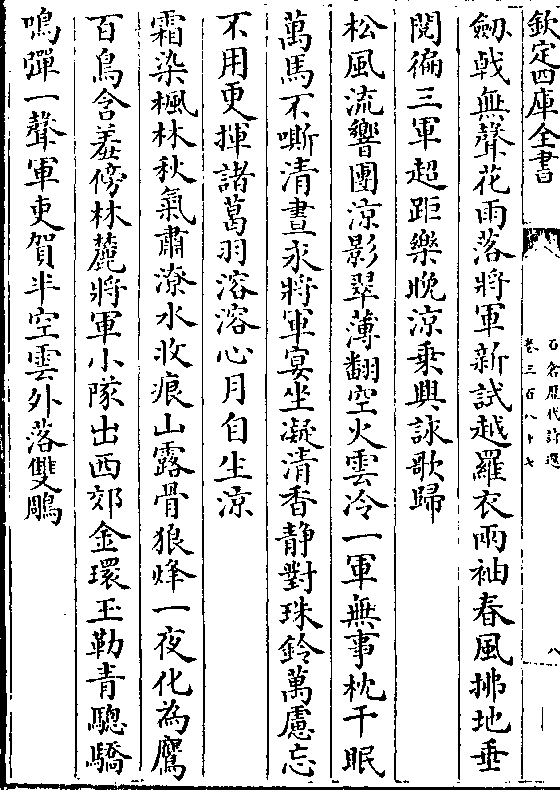 欽定四庫全書
石倉歷代詩選
卷三百八十七
八
劔戟無聲花雨落將軍新試越羅衣兩袖春風拂地垂
閱徧三軍超距樂晚涼乗興詠歌歸
松風流響團涼影翠薄翻空火雲冷一軍無事枕干眠
萬馬不嘶清晝永將軍宴坐凝清香静對珠鈴萬慮忘
不用更揮諸葛羽溶溶心月自生涼
霜染楓林秋氣肅潦水收痕山露骨狼烽一夜化為鷹
百鳥含羞傍林麓將軍小隊出西郊金環玉勒青驄驕
鳴彈一聲軍吏賀半空雲外落雙鵰